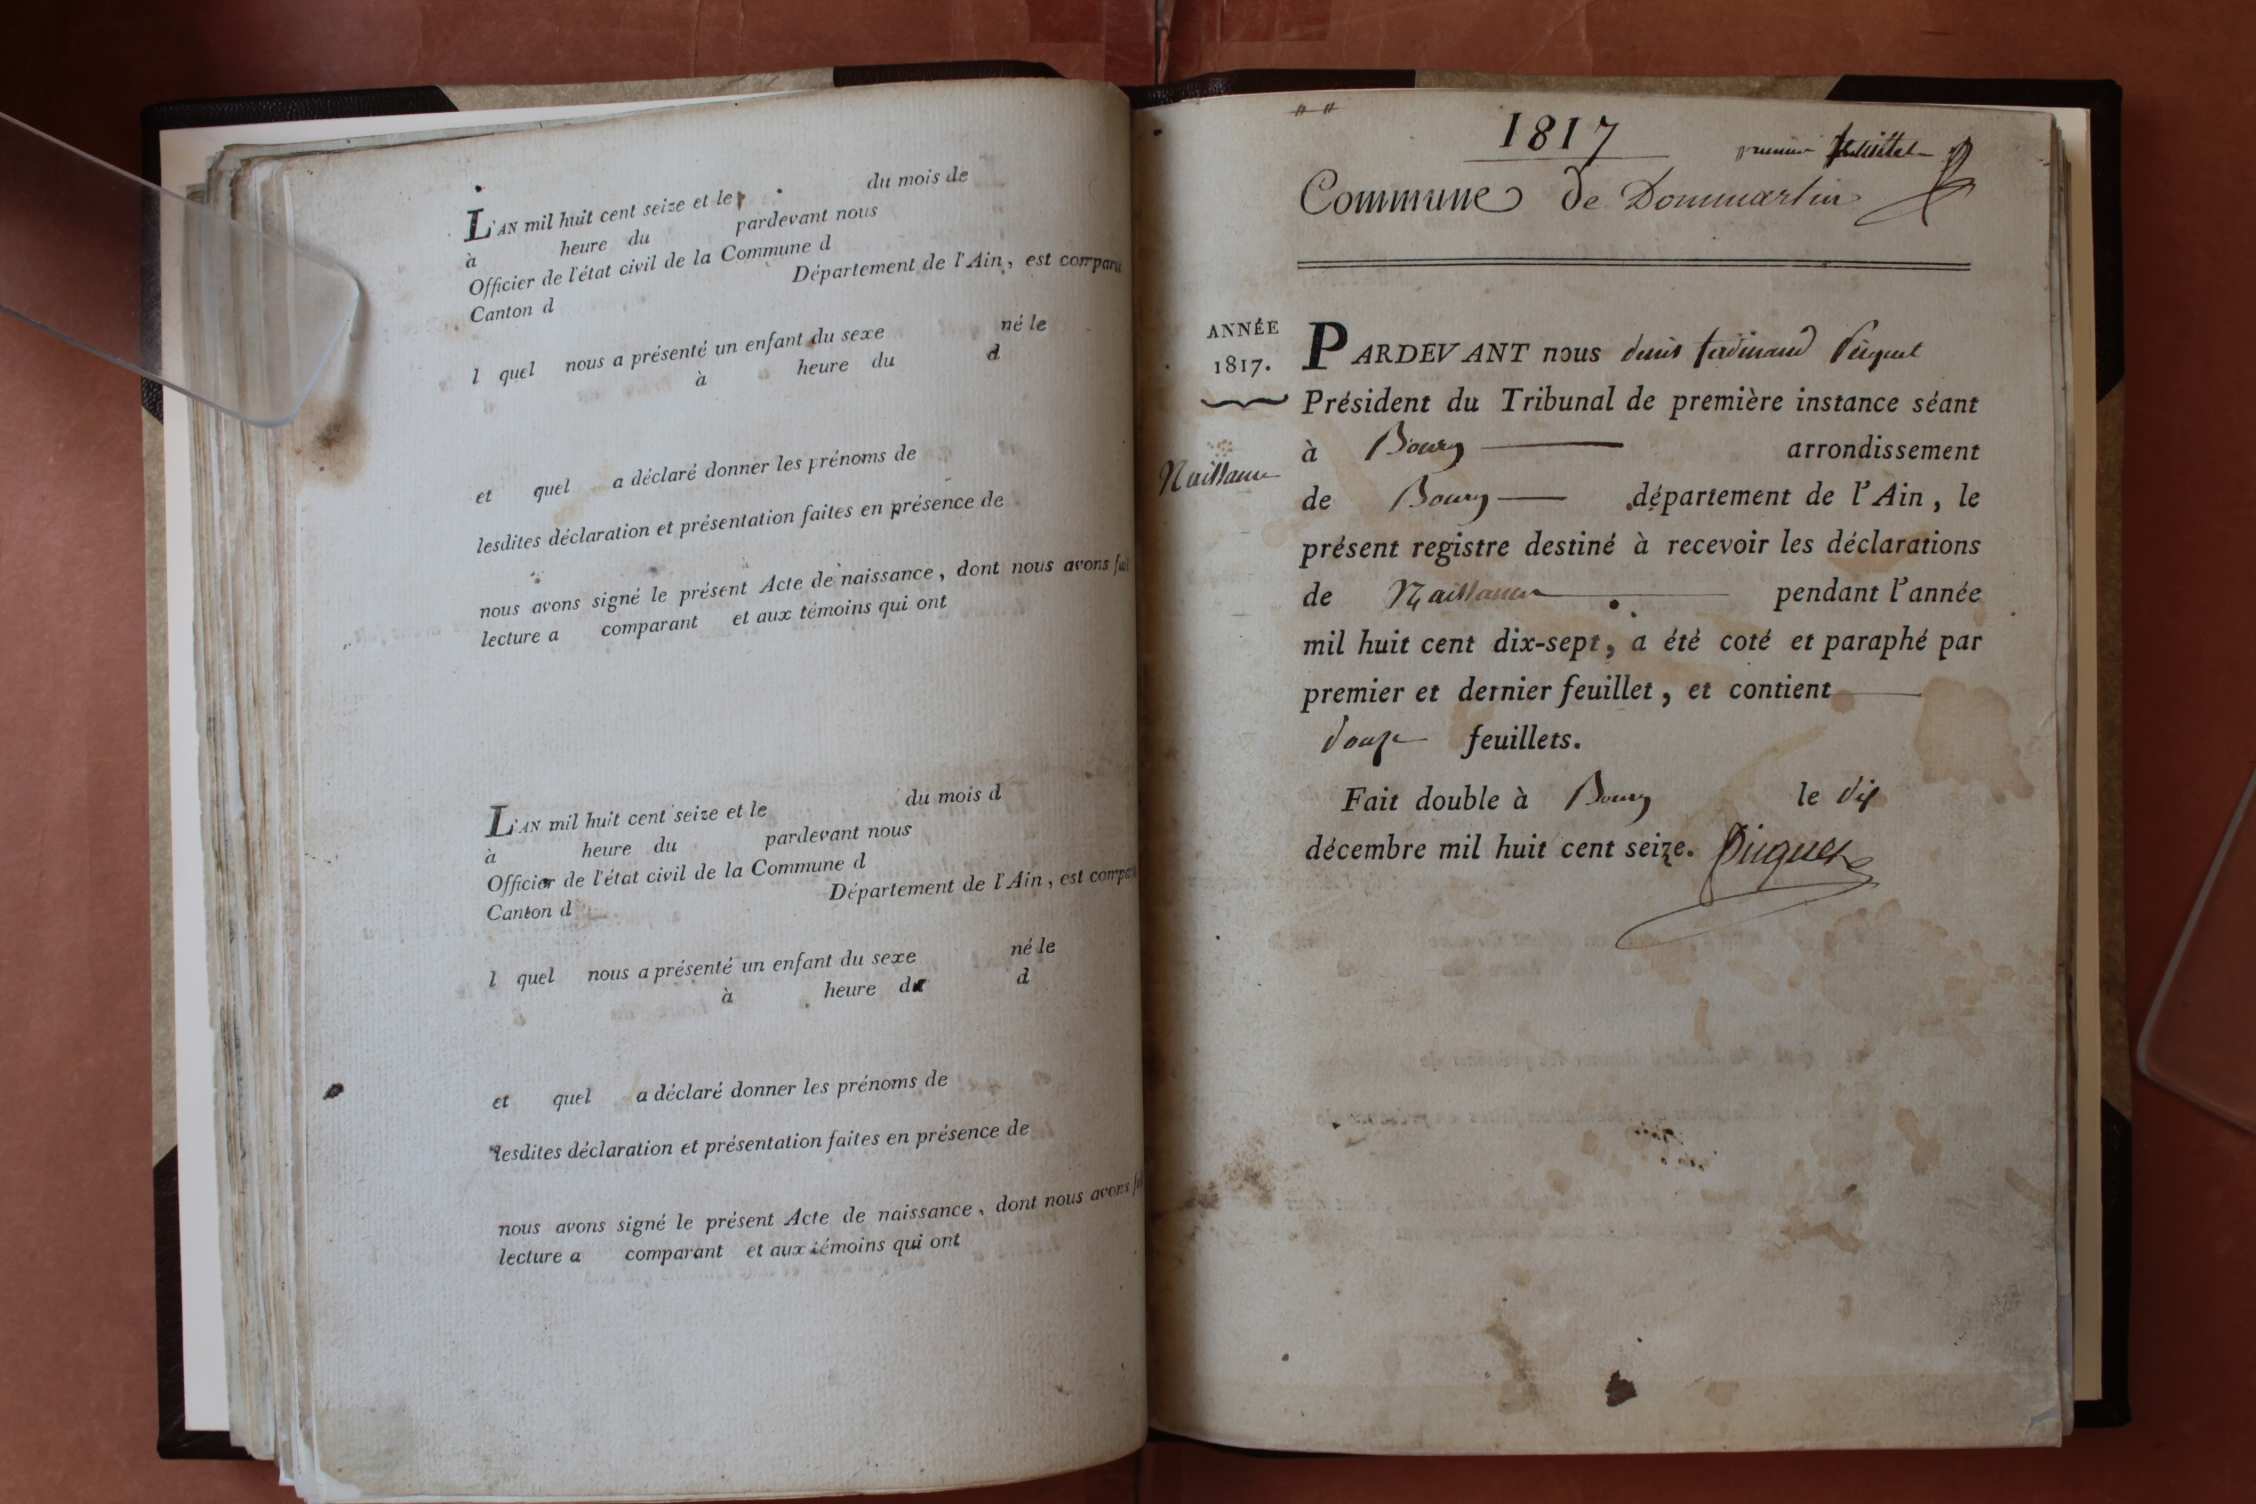 L'AN mil huit cent seize et le du mois de
à heure du pardevant nous
Officier de l'état civil de la Commune d
Canton d Département de l'Ain, est comparu
l quel nous a présenté un enfant du sexe né le
à heure du d
et quel a déclaré donner les prénoms de
lesdites déclaration et présentation faites en présence de
nous avons signé le présent Acte de naissance, dont nous avons fait
lecture a comparant et aux témoins qui ont
L'AN mil huit cent seize et le du mois d
à heure du pardevant nous
Officier de l'état civil de la Commune d
Canton d Département de l'Ain, est compa
l quel nous a présenté un enfant du sexe né le
à heure du d
et quel a déclaré donner les prénoms de
lesdites déclaration et présentation faites en présence de
nous avons signé le présent Acte de naissance, dont nous avons fai
lecture a comparant et aux témoins qui ont
1817
premier feuillet
Commune de Dommartin
ANNÉE
1817.
Naissance
PARDEVANT nous denis ferdinand Piquet
Président du Tribunal de première instance séant
à Bourg arrondissement
de Bourg département de l'Ain, le
présent registre destiné à recevoir les déclarations
de Naissance pendant l'année
mil huit cent dix-sept, a été coté et paraphé par
premier et dernier feuillet, et contient
douze feuillets.
Fait double à Bourg le dix
décembre mil huit cent seize. Piquet